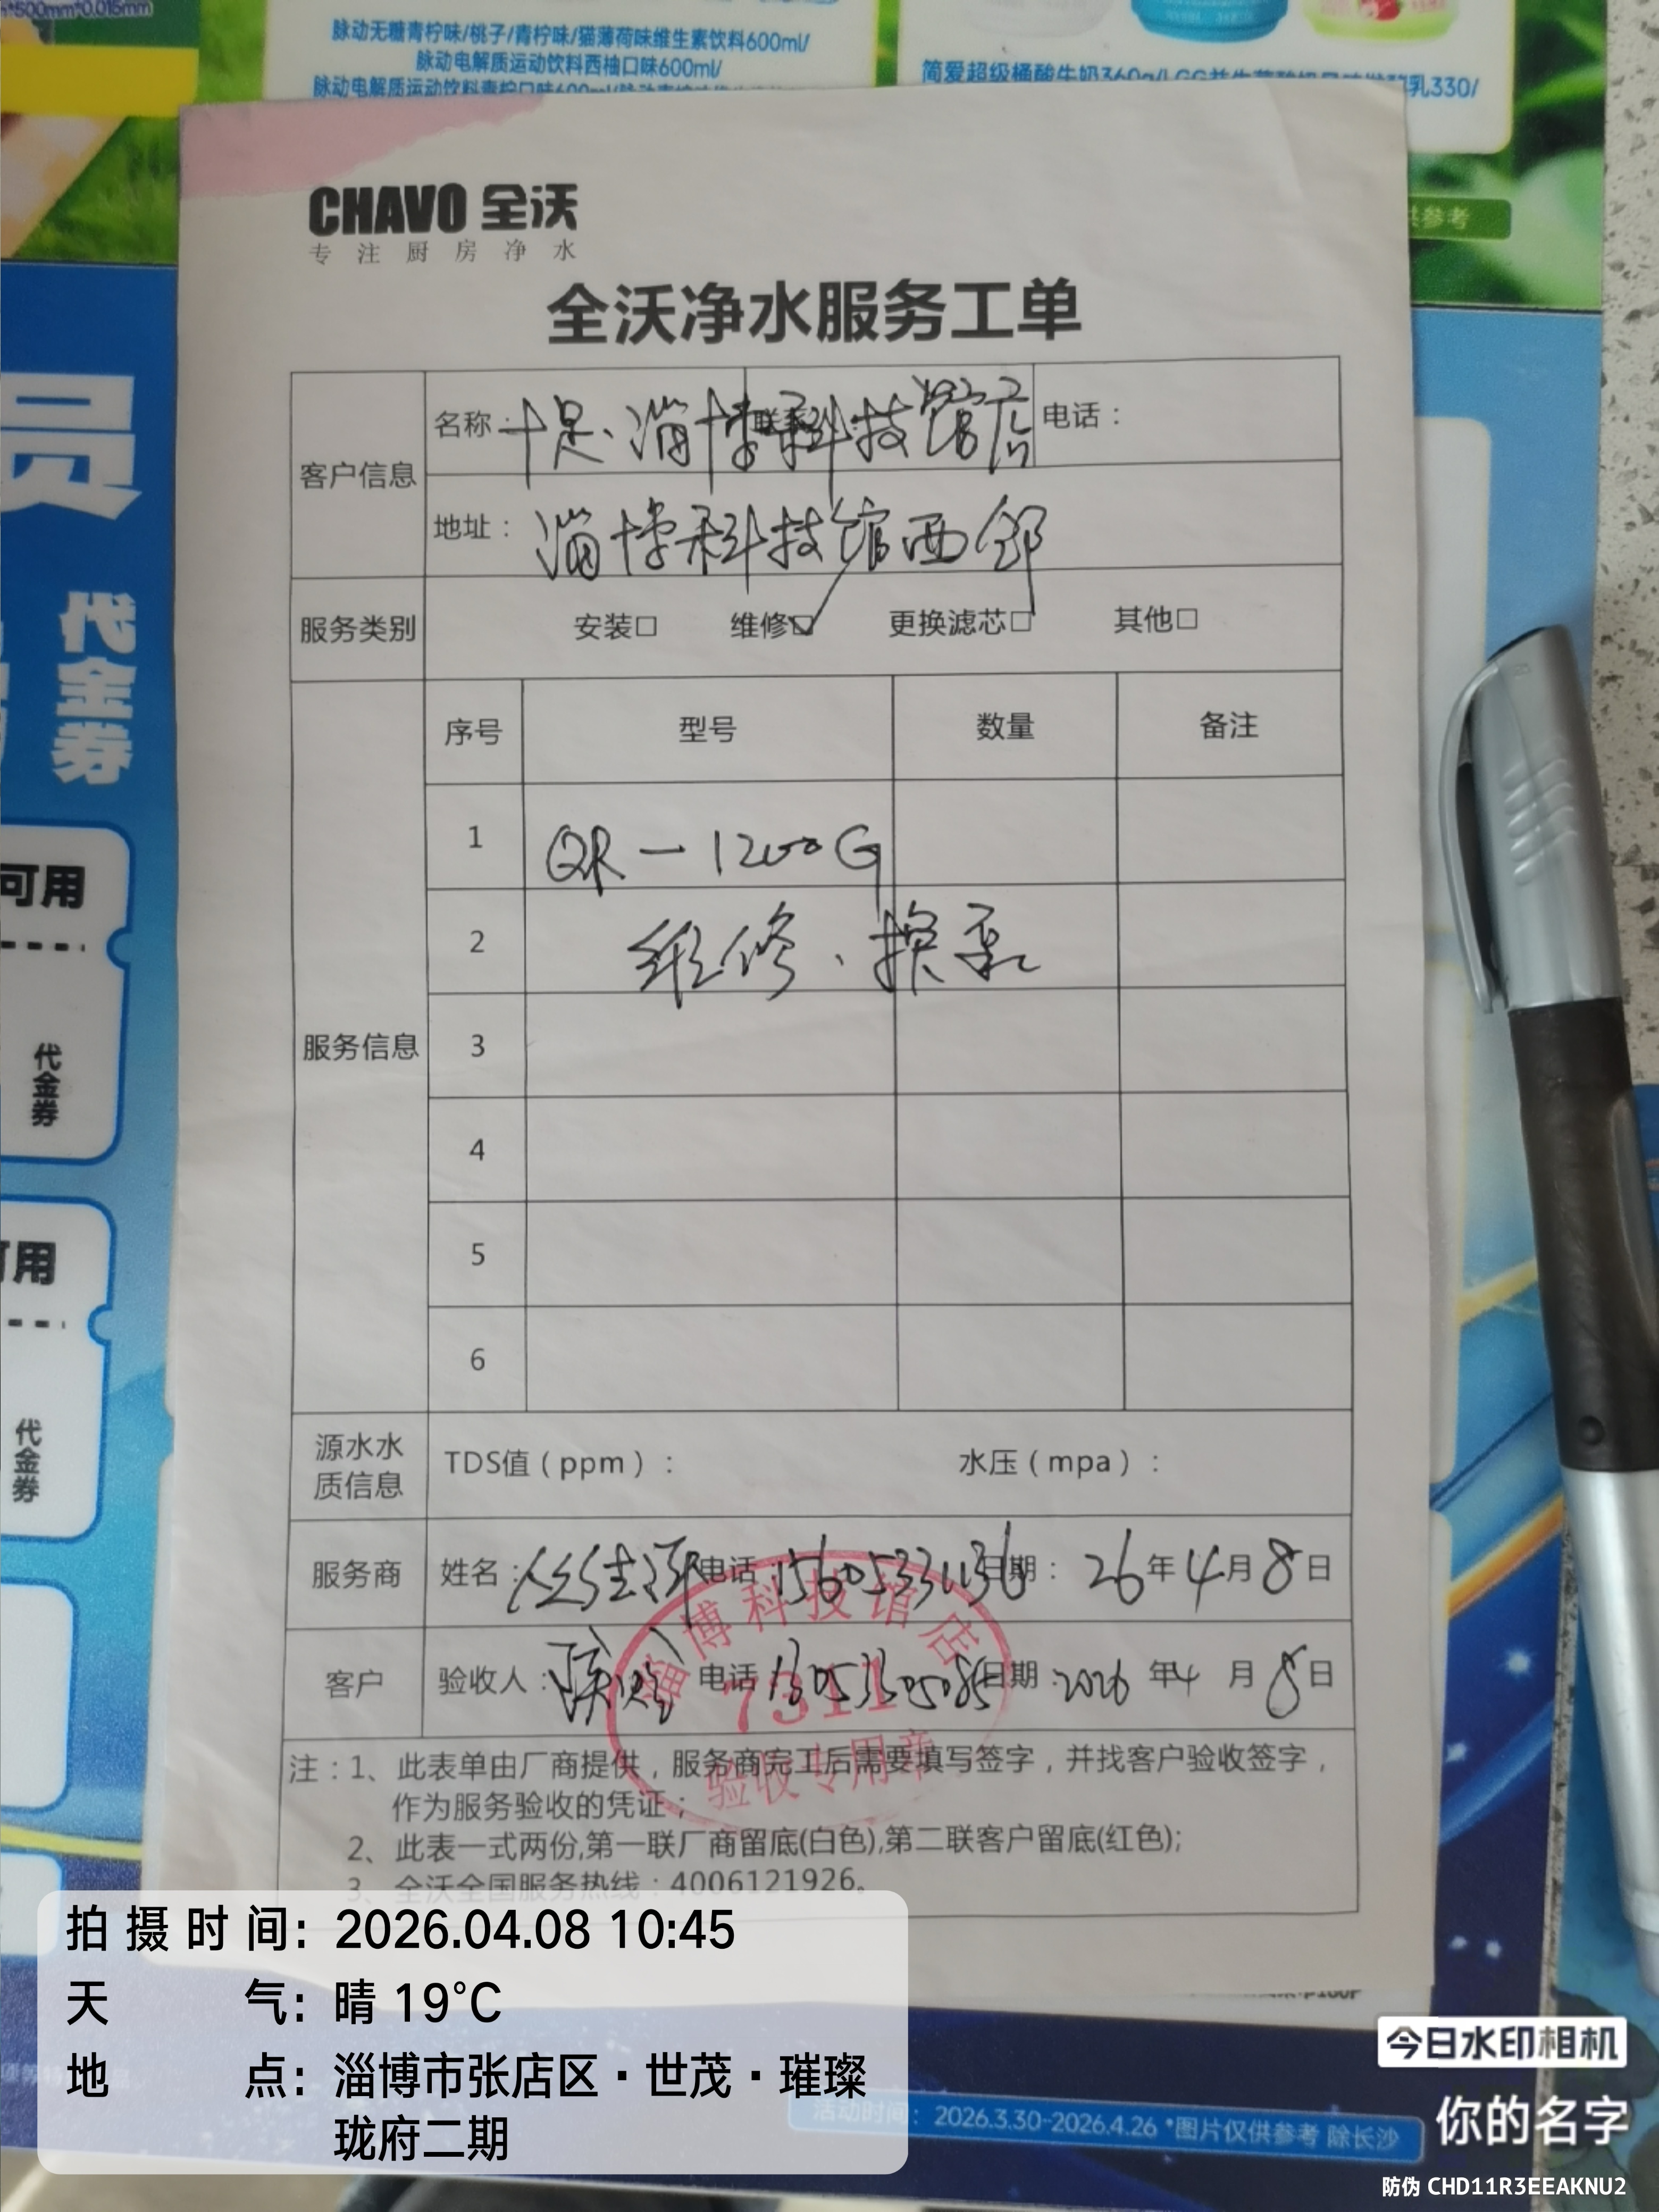 *500mm*0.015mm
脉动无糖青柠味/桃子/青柠味/猫薄荷味维生素饮料600ml/
脉动电解质运动饮料西柚口味600ml/
简爱超级桶酸牛奶360g/
乳330/
供参考
员
代金券
可用
代金券
可用
代金券
CHAVO 全沃
专注厨房净水
全沃净水服务工单
客户信息
名称：十足、淄博科技馆店
电话：
地址：淄博科技馆西邻
服务类别
安装□ 维修☑ 更换滤芯□ 其他□
服务信息
序号 型号 数量 备注
1 QR-1200G
2 维修、换泵
3
4
5
6
源水水质信息
TDS值（ppm）： 水压（mpa）：
服务商 姓名： 电话 15605331136 日期：26年4月8日
客户 验收人： 电话 日期：2026年4月8日
淄博科技馆店
7311
验收专用章
注：1、此表单由厂商提供，服务商完工后需要填写签字，并找客户验收签字，
作为服务验收的凭证；
2、此表一式两份,第一联厂商留底(白色),第二联客户留底(红色);
3、全沃全国服务热线：4006121926。
拍摄时间：2026.04.08 10:45
天气：晴 19°C
地点：淄博市张店区·世茂·璀璨
珑府二期
活动时间：2026.3.30-2026.4.26 *图片仅供参考 除长沙
今日水印相机
你的名字
防伪 CHD11R3EEAKNU2